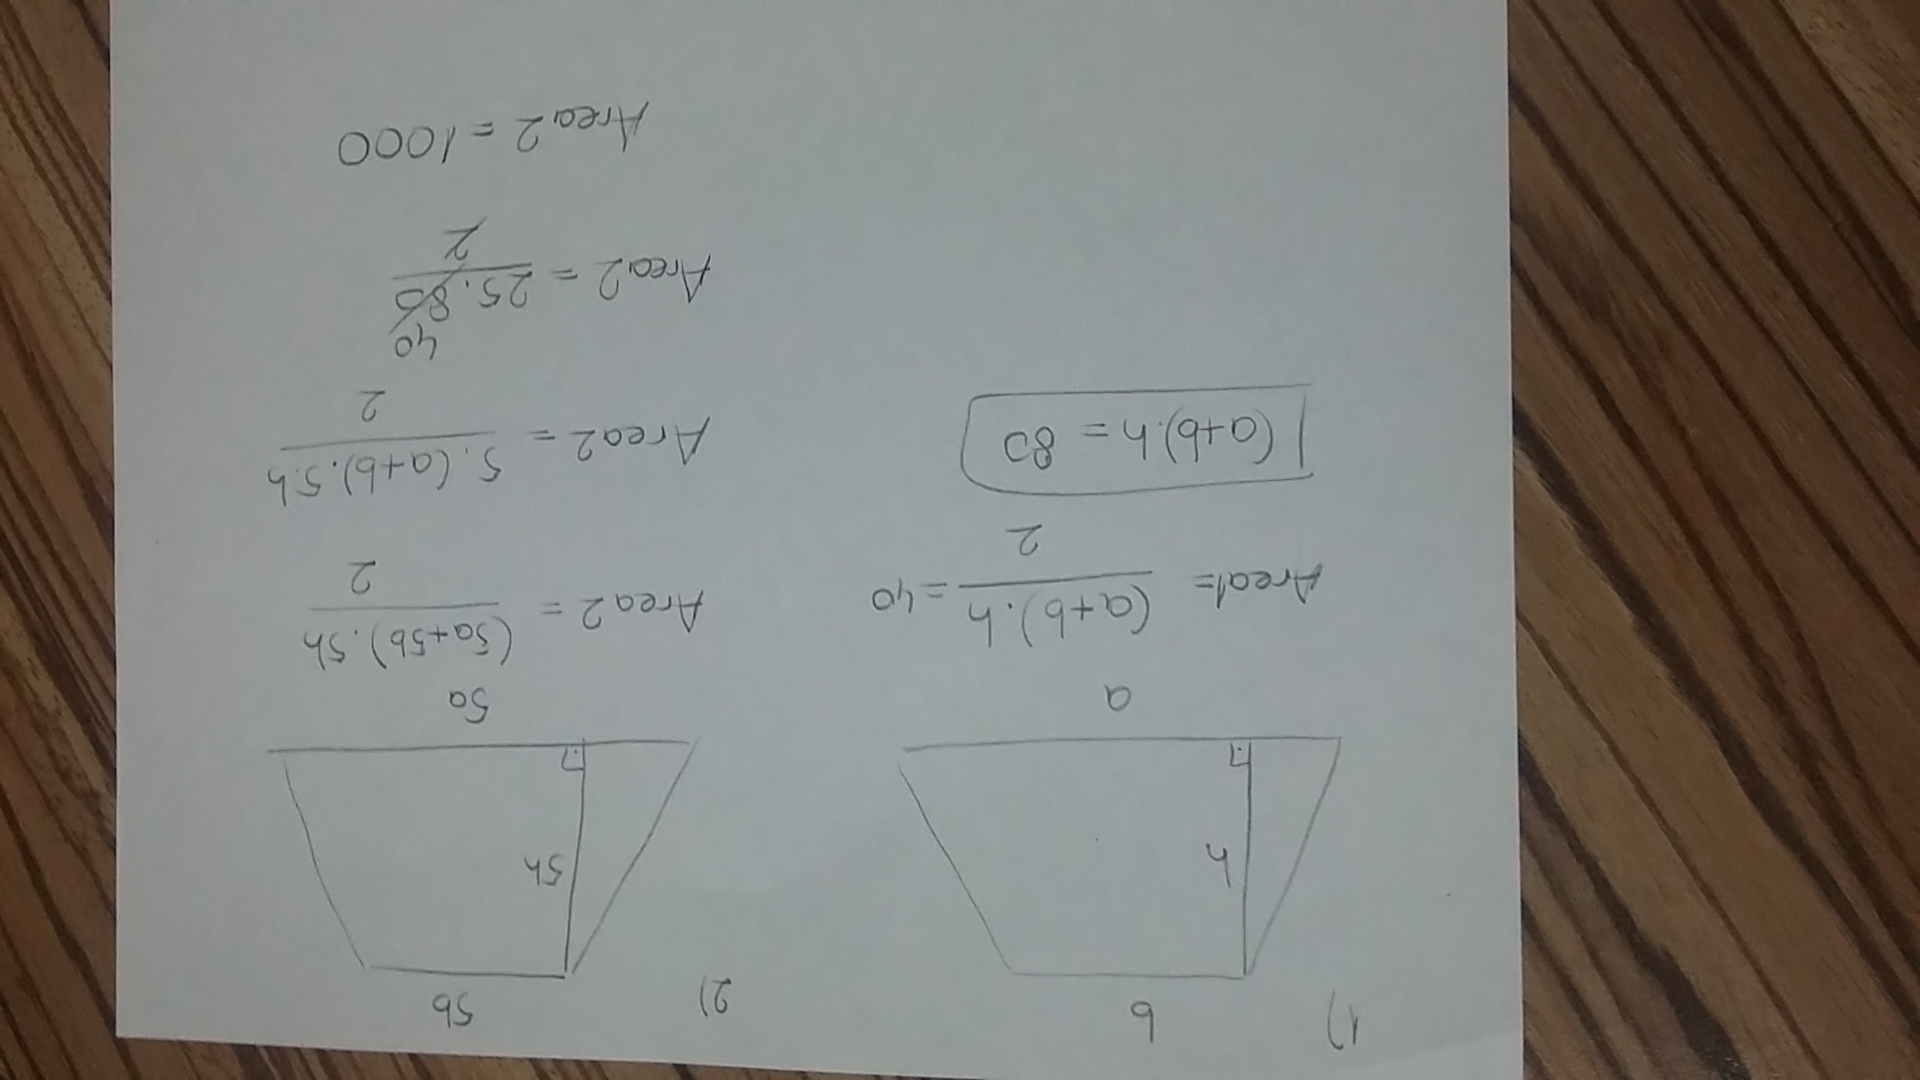 1)
b
h
a
Area1= (a+b).h / 2 = 40
(a+b).h = 80
2)
5b
5h
5a
Area2 = (5a+5b).5h / 2
Area2 = 5.(a+b).5h / 2
40
Area2 = 25.80 / 2
Area2 = 1000